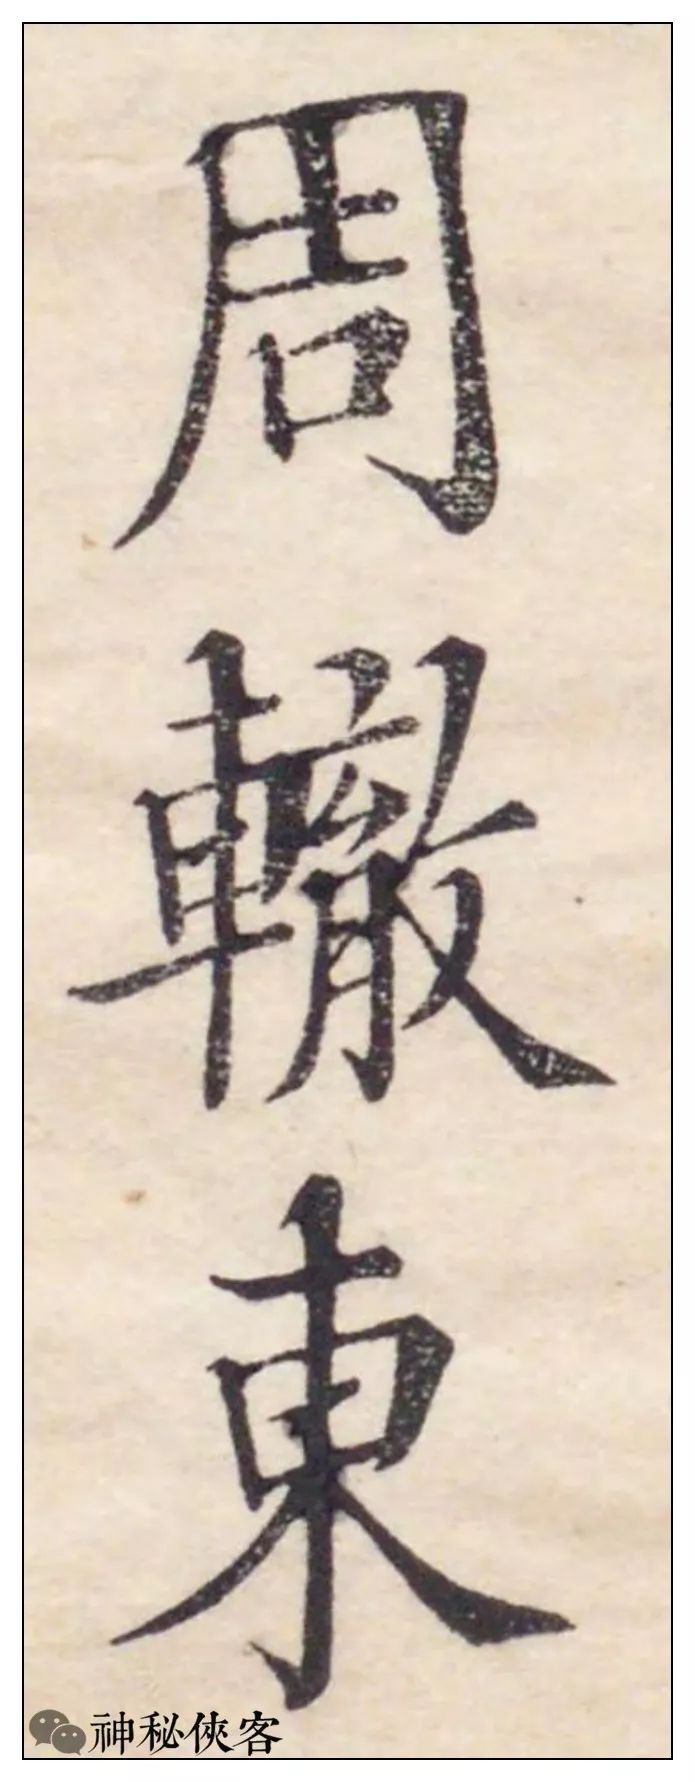 周轍東
神秘俠客